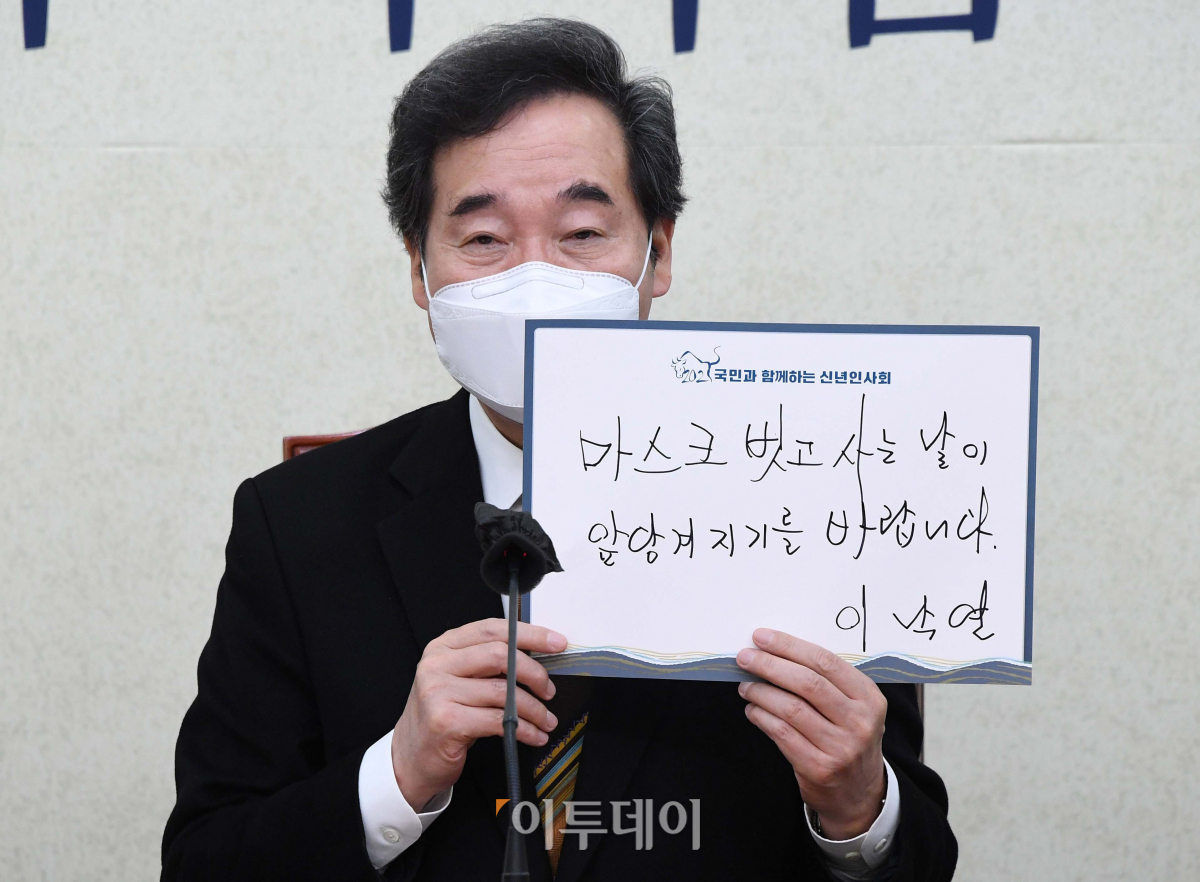 2021 국민과 함께하는 신년인사회
마스크 벗고 사는 날이
앞당겨 지기를 바랍니다.
이낙연
이투데이